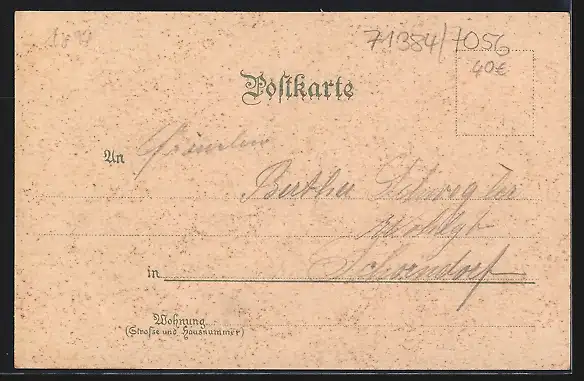 1899
71384/7056
40€
Postkarte
An Fräulein
Bertha Schwegler
in Schorndorf
Wohnung
(Strasse und Hausnummer)